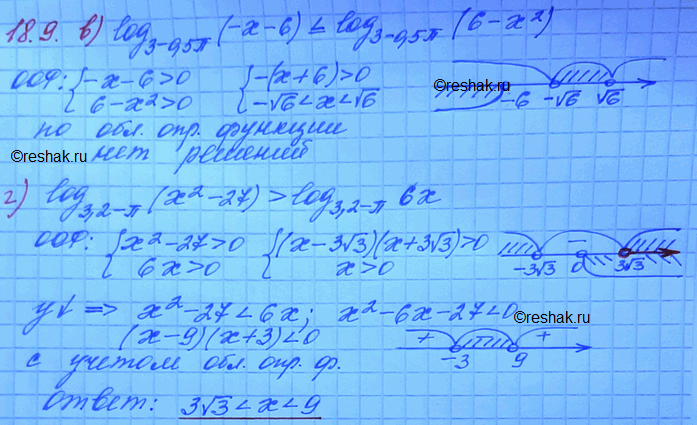 18.9. в) log₃₋₀,₅π (-x-6) < log₃₋₀,₅π (6-x²)
ООФ: { -x-6>0 { -(x+6)>0
6-x²>0 -√6<x<√6
-6 -√6 √6
©reshak.ru
по обл. опр. функции
нет решений
©reshak.ru
г) log₃,₂₋π (x²-27) > log₃,₂₋π 6x
ООФ: { x²-27>0 { (x-3√3)(x+3√3)>0
6x>0 x>0
- -3√3 0 3√3
y↓ => x²-27<6x; x²-6x-27<0
©reshak.ru
(x-9)(x+3)<0
+ - +
-3 9
с учетом обл. опр. ф.
ответ: 3√3<x<9